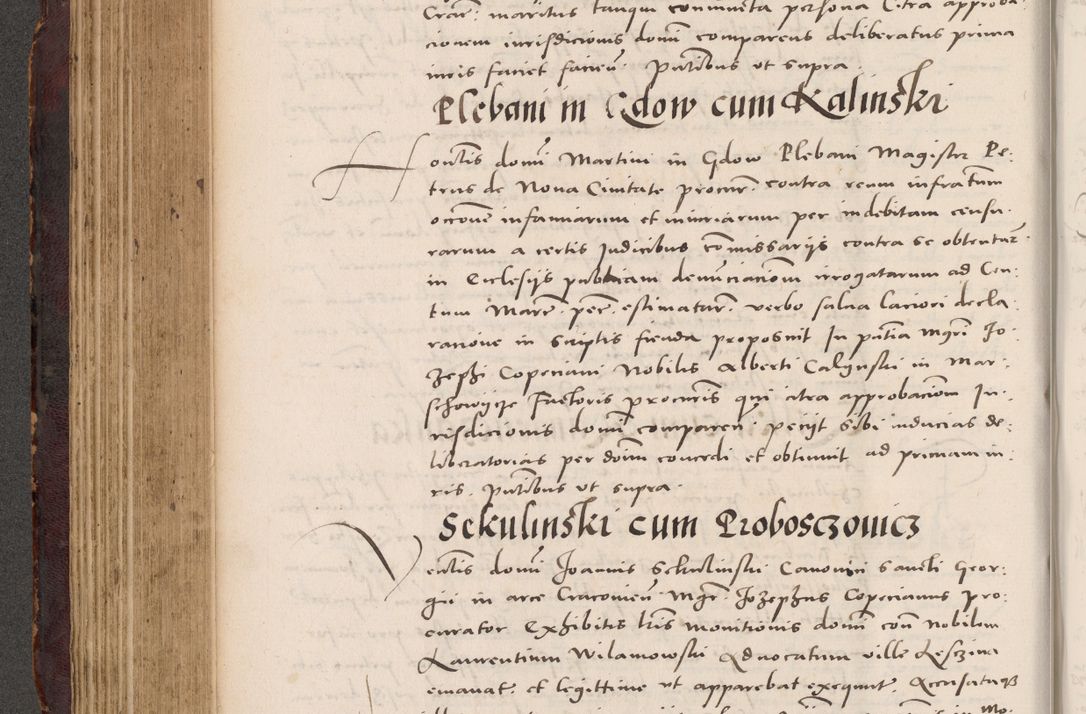 Crac: maritus tanquam coniuncta persona Citra approba:
cionem iurisdicionis domi comparens deliberatus prima
iuris faciet facieñ. Pñtibus ut supra.
Plebani in Gdow cum Kalinski
Honñlis domi Martini in Gdow Plebani Magister Pe:
trus de Nova Civitate procur. contra reum infratum
occone infamiarum et iniuriarum per indebitam censu:
rarum a certis Iudicibus comissarijs contra se obtentarz
in Ecclesijs publicam denunciacionem irrogatarum ad Cen:
tum Marc. pec. estimatarz. verbo salva laciori decla:
racione in scriptis fienda proposuit In pñtia mgri Jo:
zephi Copeciani Nobilis Alberti Calynski in Mar:
schowycze Factoris procuris qui citra approbacionem Iu:
risdicionis domi compareñ. pecijt sibi inducias de:
liberatorias per domi concedi et obtinuit ad primam iu:
ris. Pñtibus ut supra.
Sekulinski cum Proboszczowicz
Veñlis domi Joannis Sekulinski Canonici sancti Geor:
gii in arce Cracovieñ. Mgr. Jozephus Copecianus pro:
curator Exhibitis lris monitionis domi coñ nobilem
Laurentium Wilamowski Advocatum ville Leszczina
emanat. et legittime ut apparebat exequut. Accusatáqz